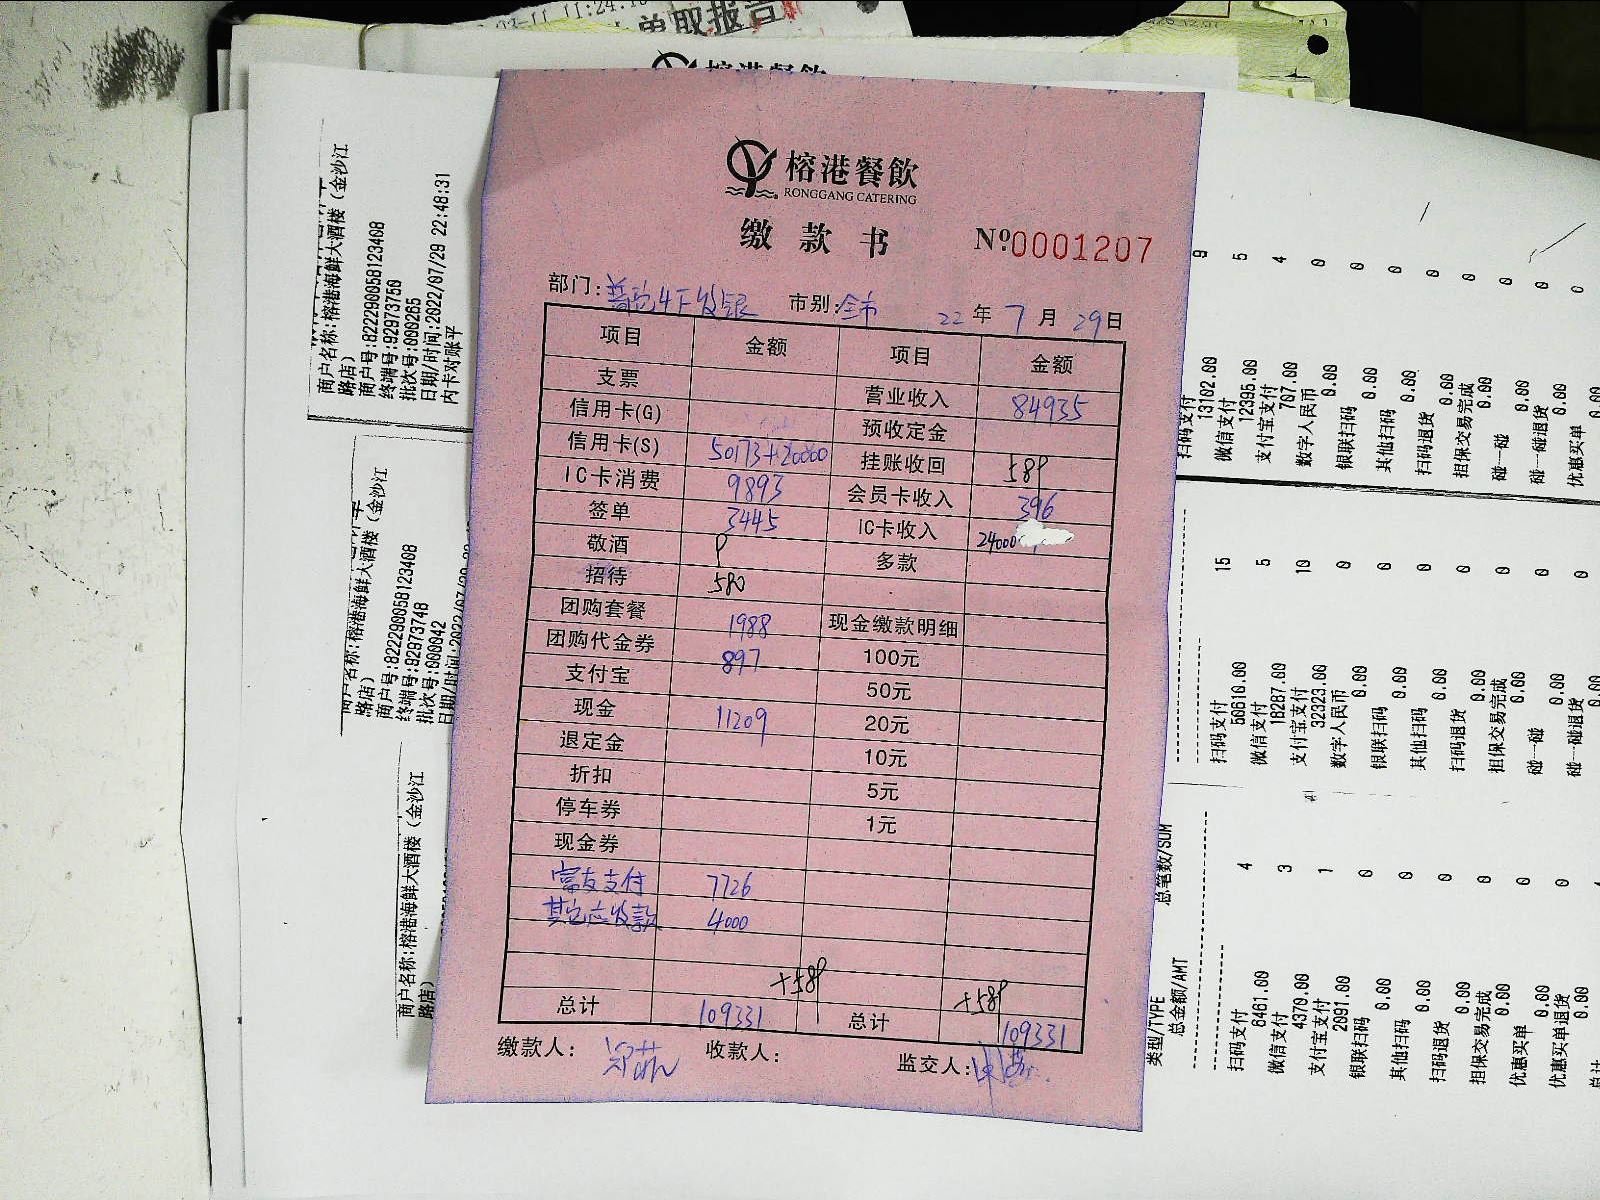 11:24:
单取报告
榕港餐飲
榕港餐飲
RONGGANG CATERING
缴款书
Nº0001207
部门: 市别:全市 22年7月29日
项目 金额 项目 金额
支票 营业收入 84935
信用卡(G) 预收定金
信用卡(S) 50173+20000 挂账收回 589
IC卡消费 9893 会员卡收入 396
签单 3445 IC卡收入 24000
敬酒 9 多款
招待 580
团购套餐 1988 现金缴款明细
团购代金券 897 100元
支付宝 50元
现金 11209 20元
退定金 10元
折扣 5元
停车券 1元
现金券
富友支付 7726
其它应收款 4000
+589 +589
总计 109331 总计 109331
缴款人: 收款人: 监交人:
商户名称:榕港海鲜大酒楼（金沙江
路店）
商户号:822290058123408
终端号:92973750
批次号:000265
日期/时间:2022/07/29 22:48:31
内卡对账平
商户名称:榕港海鲜大酒楼（金沙江
路店）
商户号:822290058123408
终端号:92973748
批次号:000042
日期/时间:2022/07/29
商户名称:榕港海鲜大酒楼（金沙江
路店）
扫码支付 9
13102.00
微信支付 5
12395.00
支付宝支付 4
707.00
数字人民币 0
0.00
银联扫码 0
0.00
其他扫码 0
0.00
扫码退货 0
0.00
担保交易完成 0
0.00
碰一碰 0
0.00
碰一碰退货 0
0.00
优惠买单 0
0.00
扫码支付 15
50610.00
微信支付 5
18287.00
支付宝支付 10
32323.00
数字人民币 0
0.00
银联扫码 0
0.00
其他扫码 0
0.00
扫码退货 0
0.00
担保交易完成 0
0.00
碰一碰 0
0.00
碰一碰退货 0
0.00
类型/TYPE 总笔数/SUM
总金额/AMT
扫码支付 4
6461.00
微信支付 3
4370.00
支付宝支付 1
2091.00
银联扫码 0
0.00
其他扫码 0
0.00
扫码退货 0
0.00
担保交易完成 0
0.00
优惠买单 0
0.00
优惠买单退货 0
0.00
总计